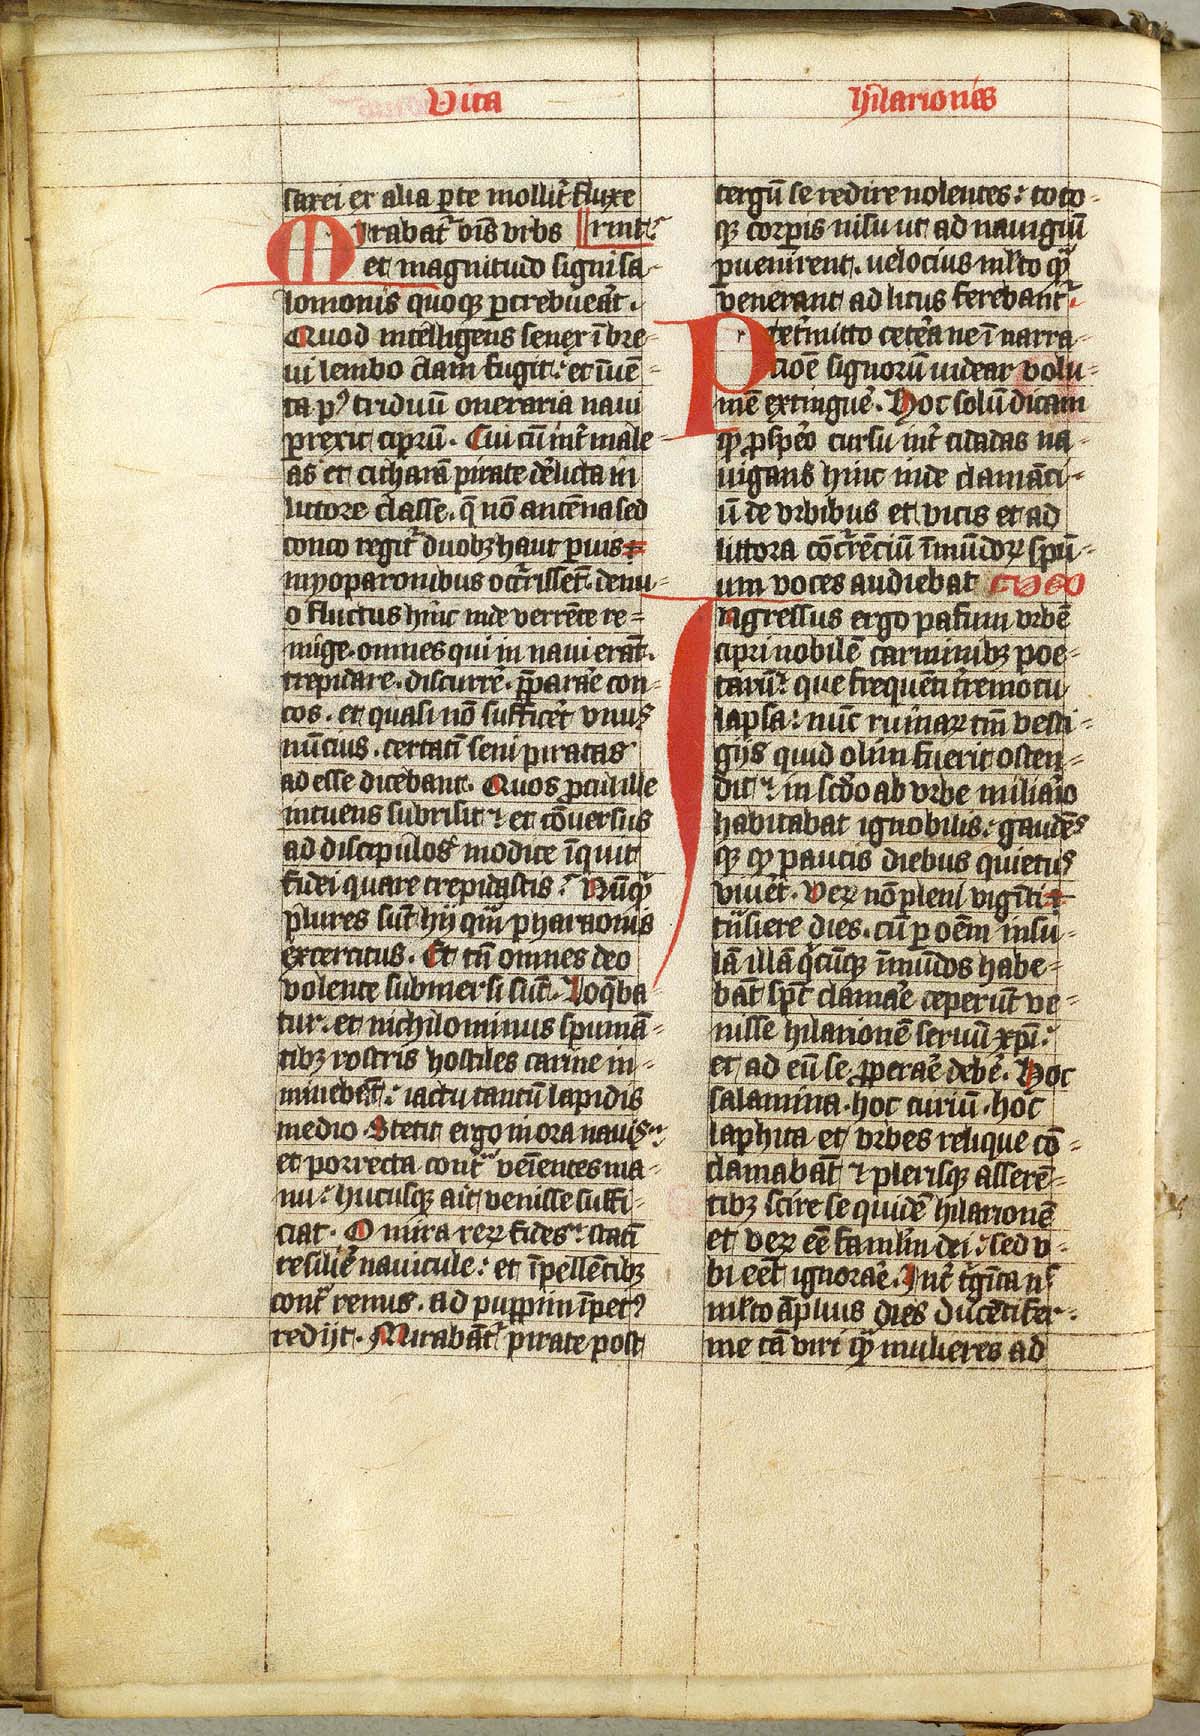 Vita
hilarionis
sarei et alia ꝑte molliť fluxe
Mirabať oı̄s vrbs rint
et magnitudo signi sa-
lomonis quoqꝫ ꝑcrebueāt.
Quod intelligens senex ī bre-
ui lembo clam fugit: et īuē-
ta pꝰ triduū oneraria naui
ꝑrexit cipꝝ. Cui cū int̄ male-
as et cicharā pirate derlicta in
littore classe. q̄ nō antēna sed
conto regiť duobꝫ haut ꝑuis
myoparonibus occ̄rissent. denu-
o fluctus hinc inde verrēte re-
mige. omnes qui in naui erāt.
trepidare. discurre̅. p̄parae con-
tos. et quasi nō sufficeř vnus
nūcius. certatī seni piratas
adesse dicebant. Quos ꝓcul ille
intuens subrisit et cōuersus
ad discipulos modice īquit
fidei quare trepidastis: Nūq̄
plures sūt hij quā pharaonis
excercitus. Et tn̄ omnes deo
volente submersi sūt. Loq̄ba-
tur. et nichilominus spumā-
tibꝫ rostris hostiles carine in-
minebāt: iactu tantū lapidis
medio. Stetit ergo in ora nauis
et porrecta contᵃ veīentes ma-
nu: hucusqꝫ ait venisse suffi-
ciat. O mira reꝝ fides: statī
resilieř nauicule: et īpellētibꝫ
contᵃ remis. ad puppim īpetꝰ
redijt. Mirabāť pirate post
tergū se redire nolentes: toto-
qꝫ corꝑis nisu ut ad nauigiū
ꝑuenirent. velocius ml̄to qᷓ
venerant ad litus ferebant̄
Pret̄mitto cet̄a ne ī narra-
tiōe signorū uidear volu-
mē extingue̅. Hoc solū dicam
qᷓ ꝓspeo cursu int̄ cicladas na-
uigans hinc inde clamāci-
ū de vrbibus et vicis et ad
littora cōcr̄renciū īmūdoꝝ spūū-
um voces audiebat
Ingressus ergo pafum vrbē
cipri nobilē carminibꝫ poe-
tarū: que frequēti tremotu
lapsa: nūc ruinaꝝ tm̄ vesti-
gijs quid olim fuerit osten-
dit in scd̄o ab vrbe miliaio
habitabat ignobilis: gaudēs
qꝫ qᷓ paucis diebus quietus
viuet̄. Veꝝ nō pleni viginti
trāsiere dies. cū ꝑ oēm insu-
lā illā q̄cūqꝫ īmūdos habe-
bāt sp̄c clamae ceperūt ve-
nisse hilarionē seruū xpī:
et ad eū se ꝓperae debe̅. Hoc
salamina. hoc curiū. hoc
laphita et vrbes relique cō-
clamabāt plerisqꝫ asserē-
tibꝫ scire se quidē hilarionē
et veꝝ eē famlm̄ dei: sed v-
bi eēt ignorae. Int̄ tᵍinta nˢ
ml̄to āplius dies ducēti fer-
me tā viri qᷓ mulieres ad